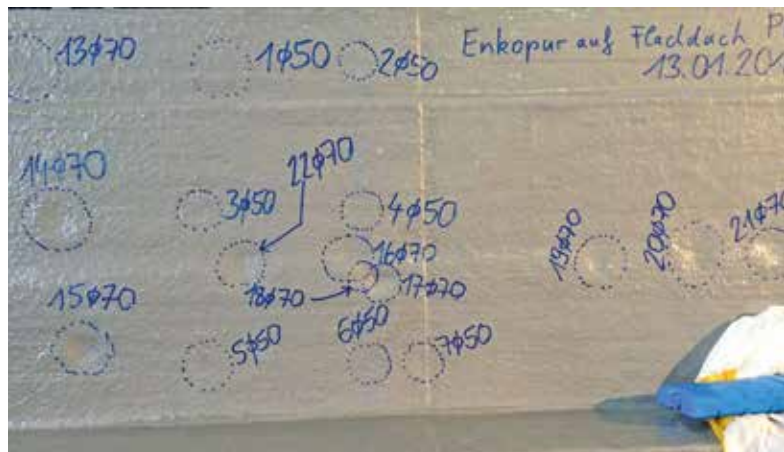 13ϕ70
1ϕ50
2ϕ50
Enkopur auf Flachdach
13.01.201
14ϕ70
3ϕ50
22ϕ70
4ϕ50
16ϕ70
18ϕ70
17ϕ70
19ϕ70
20ϕ70
21ϕ70
15ϕ70
5ϕ50
6ϕ50
7ϕ50